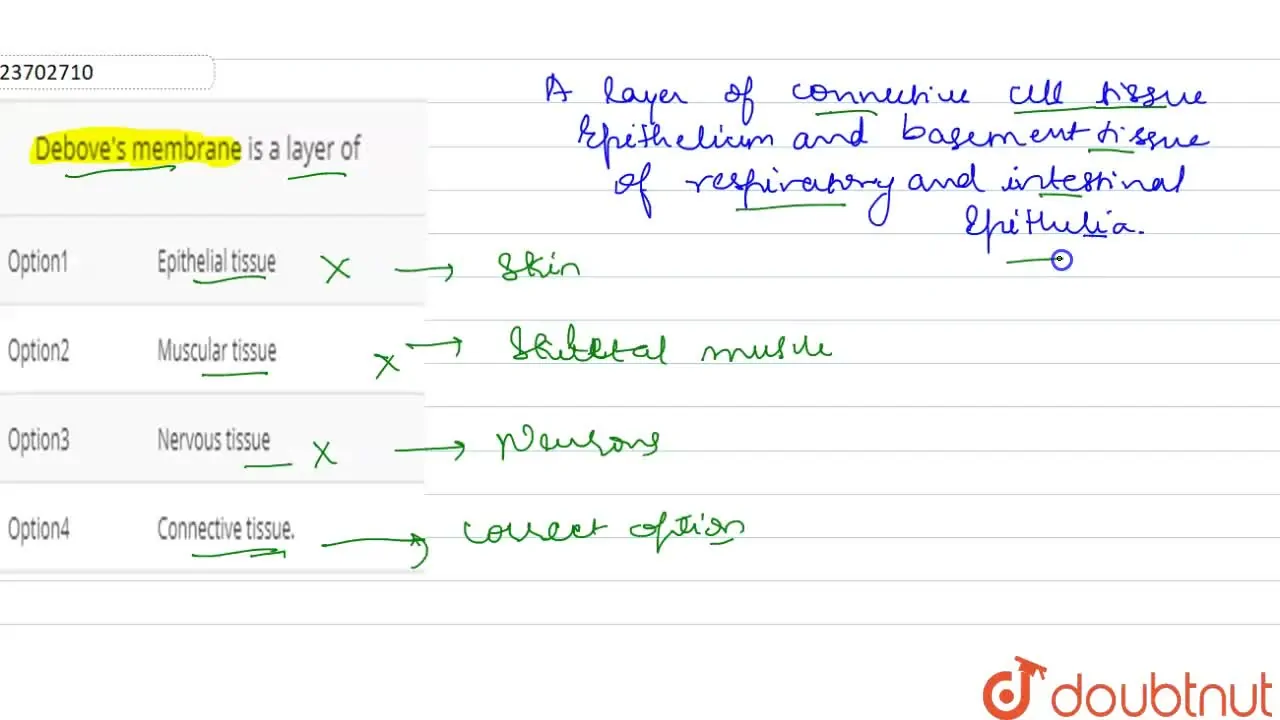 23702710
Debove's membrane is a layer of
Option1 Epithelial tissue X → Skin
Option2 Muscular tissue X → Skeletal muscle
Option3 Nervous tissue X → Neurons
Option4 Connective tissue. → correct option
A layer of connective cell tissue
Epithelium and basement tissue
of respiratory and intestinal
Epithelia.
doubtnut